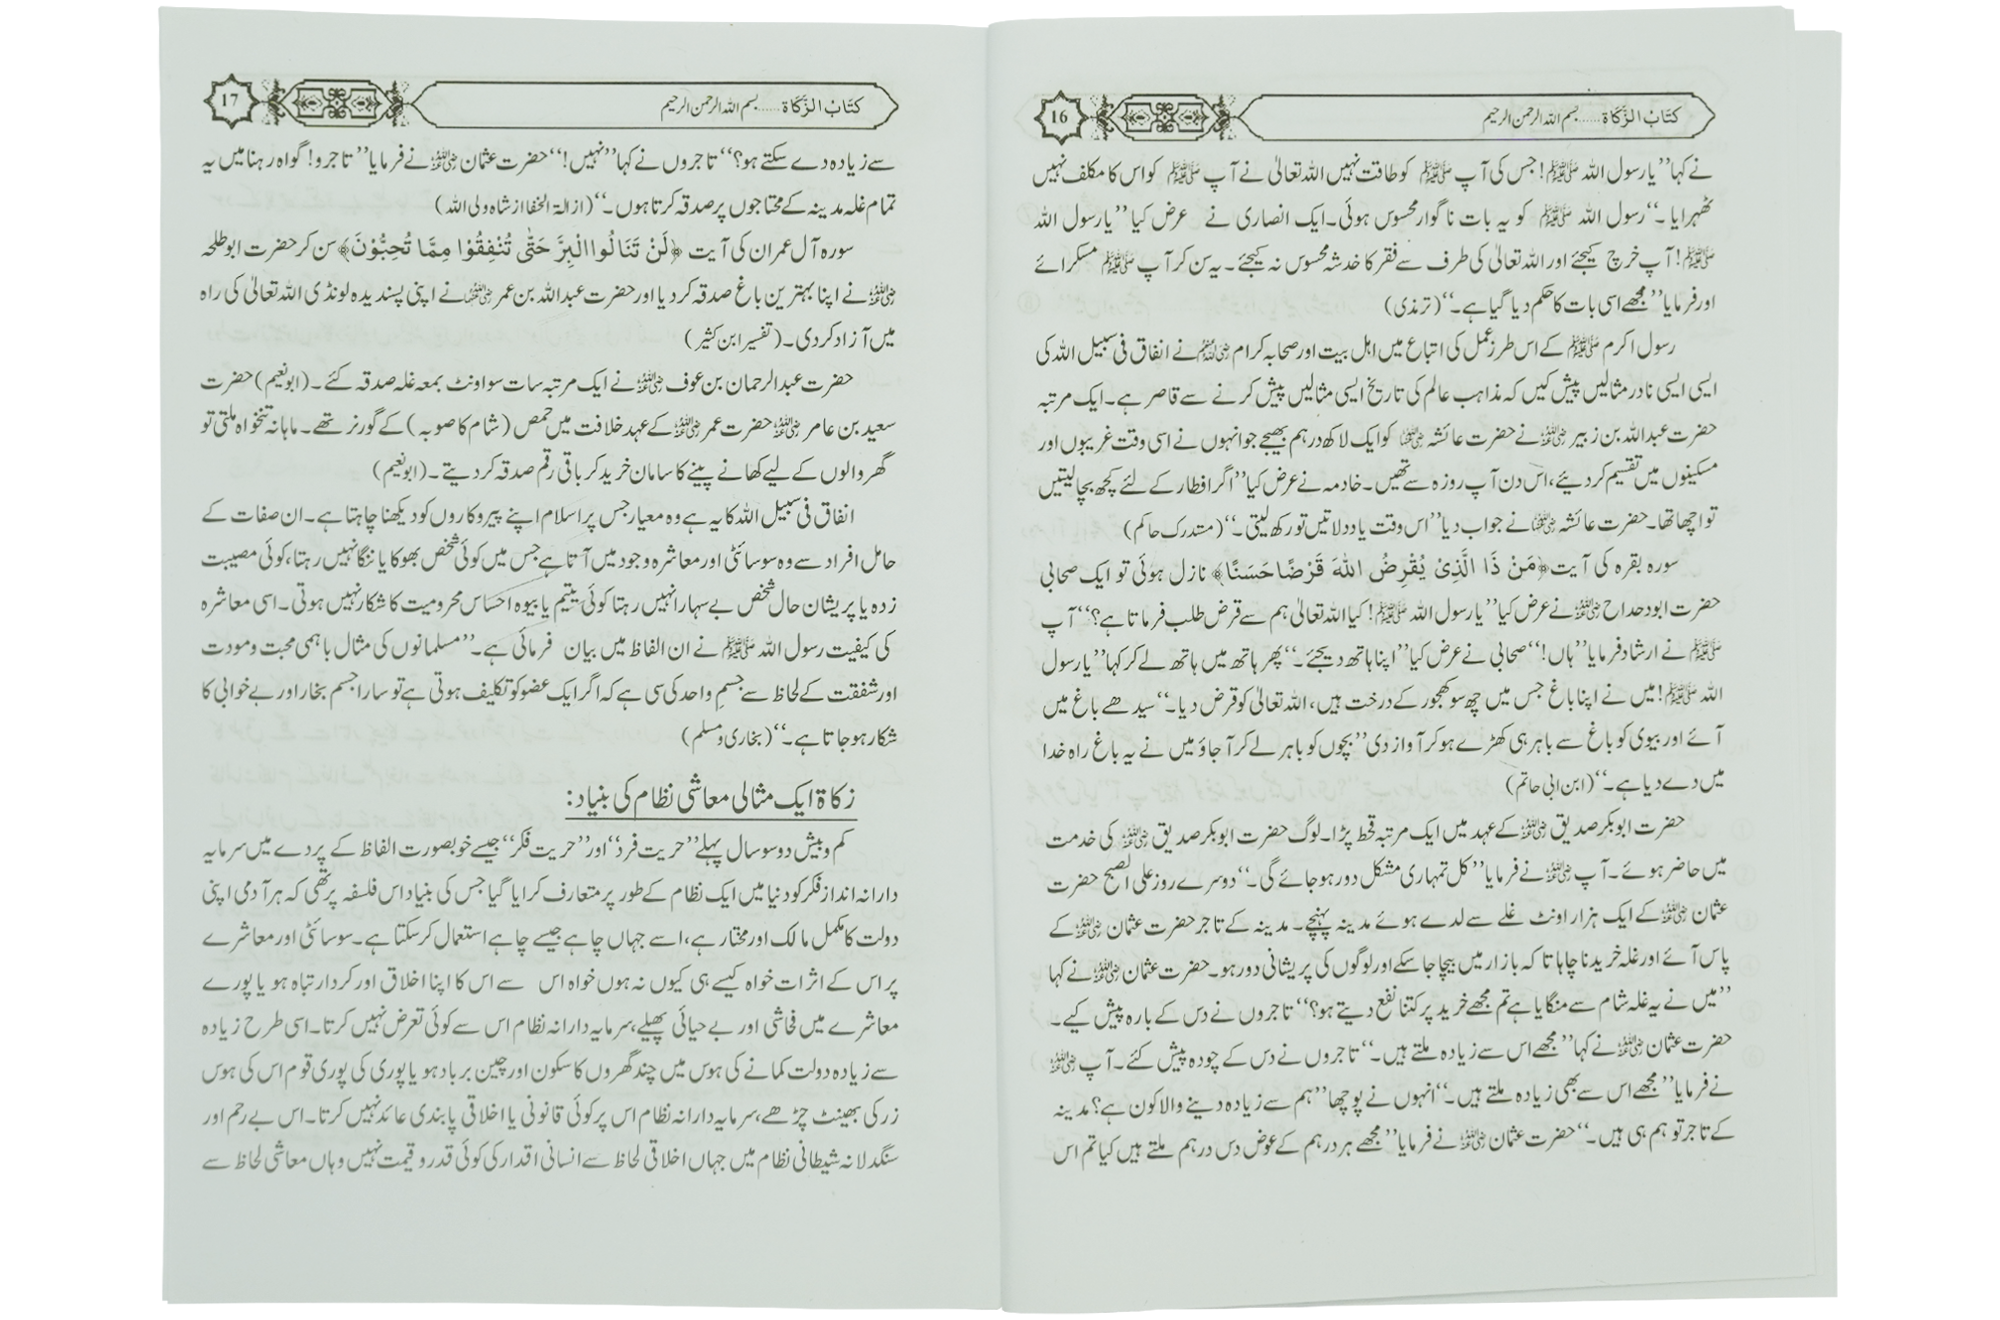 کتاب الزّکاۃ......بسم اللہ الرحمن الرحیم
16
نے کہا’’یا رسول اللہ ﷺ! جس کی آپ ﷺ کو طاقت نہیں اللہ تعالیٰ نے آپ ﷺ کو اس کا مکلف نہیں
ٹھہرایا۔‘‘ رسول اللہ ﷺ کو یہ بات ناگوار محسوس ہوئی۔ ایک انصاری نے عرض کیا’’یا رسول اللہ
ﷺ! آپ خرچ کیجئے اور اللہ تعالیٰ کی طرف سے فقر کا خدشہ محسوس نہ کیجئے۔ یہ سن کر آپ ﷺ مسکرائے
اور فرمایا’’مجھے اسی بات کا حکم دیا گیا ہے۔‘‘ (ترمذی)
رسول اکرم ﷺ کے اس طرز عمل کی اتباع میں اہل بیت اور صحابہ کرام رضی اللہ عنہم نے انفاق فی سبیل اللہ کی
ایسی ایسی نادر مثالیں پیش کیں کہ مذاہب عالم کی تاریخ ایسی مثالیں پیش کرنے سے قاصر ہے۔ ایک مرتبہ
حضرت عبداللہ بن زبیر رضی اللہ عنہ نے حضرت عائشہ رضی اللہ عنہا کو ایک لاکھ درہم بھیجے جو انہوں نے اسی وقت غریبوں اور
مسکینوں میں تقسیم کر دیئے، اس دن آپ روزہ سے تھیں۔ خادمہ نے عرض کیا’’اگر افطار کے لئے کچھ بچا لیتیں
تو اچھا تھا۔ حضرت عائشہ رضی اللہ عنہا نے جواب دیا’’اس وقت یاد دلاتیں تو رکھ لیتی۔‘‘ (مستدرک حاکم)
سورہ بقرہ کی آیت ﴿مَنْ ذَا الَّذِیْ یُقْرِضُ اللّٰهَ قَرْضًا حَسَنًا﴾ نازل ہوئی تو ایک صحابی
حضرت ابودحداح رضی اللہ عنہ نے عرض کیا’’یا رسول اللہ ﷺ! کیا اللہ تعالیٰ ہم سے قرض طلب فرماتا ہے؟‘‘ آپ
ﷺ نے ارشاد فرمایا’’ہاں!‘‘ صحابی نے عرض کیا’’اپنا ہاتھ دیجئے۔‘‘ پھر ہاتھ میں ہاتھ لے کر کہا’’یا رسول
اللہ ﷺ! میں نے اپنا باغ جس میں چھ سو کھجور کے درخت ہیں، اللہ تعالیٰ کو قرض دیا۔‘‘ سیدھے باغ میں
آئے اور بیوی کو باغ سے باہر ہی کھڑے ہو کر آواز دی’’بچوں کو باہر لے کر آجاؤ میں نے یہ باغ راہ خدا
میں دے دیا ہے۔‘‘ (ابن ابی حاتم)
حضرت ابوبکر صدیق رضی اللہ عنہ کے عہد میں ایک مرتبہ قحط پڑا۔ لوگ حضرت ابوبکر صدیق رضی اللہ عنہ کی خدمت
میں حاضر ہوئے۔ آپ رضی اللہ عنہ نے فرمایا’’کل تمہاری مشکل دور ہو جائے گی۔‘‘ دوسرے روز علی الصبح حضرت
عثمان رضی اللہ عنہ کے ایک ہزار اونٹ غلے سے لدے ہوئے مدینہ پہنچے۔ مدینہ کے تاجر حضرت عثمان رضی اللہ عنہ کے
پاس آئے اور غلہ خریدنا چاہا تا کہ بازار میں بیچا جا سکے اور لوگوں کی پریشانی دور ہو۔ حضرت عثمان رضی اللہ عنہ نے کہا
’’میں نے یہ غلہ شام سے منگایا ہے تم مجھے خرید پر کتنا نفع دیتے ہو؟‘‘ تاجروں نے دس کے بارہ پیش کیے۔
حضرت عثمان رضی اللہ عنہ نے کہا’’مجھے اس سے زیادہ ملتے ہیں۔‘‘ تاجروں نے دس کے چودہ پیش کئے۔ آپ رضی اللہ عنہ
نے فرمایا’’مجھے اس سے بھی زیادہ ملتے ہیں۔‘‘ انہوں نے پوچھا’’ہم سے زیادہ دینے والا کون ہے؟ مدینہ
کے تاجر تو ہم ہی ہیں۔‘‘ حضرت عثمان رضی اللہ عنہ نے فرمایا’’مجھے ہر درہم کے عوض دس درہم ملتے ہیں کیا تم اس
کتاب الزّکاۃ......بسم اللہ الرحمن الرحیم
17
سے زیادہ دے سکتے ہو؟‘‘ تاجروں نے کہا’’نہیں!‘‘ حضرت عثمان رضی اللہ عنہ نے فرمایا’’تاجرو! گواہ رہنا میں یہ
تمام غلہ مدینہ کے محتاجوں پر صدقہ کرتا ہوں۔‘‘ (ازالۃ الخفا از شاہ ولی اللہ)
سورہ آل عمران کی آیت ﴿لَنْ تَنَالُوا الْبِرَّ حَتّٰی تُنْفِقُوْا مِمَّا تُحِبُّوْنَ﴾ سن کر حضرت ابوطلحہ
رضی اللہ عنہ نے اپنا بہترین باغ صدقہ کر دیا اور حضرت عبداللہ بن عمر رضی اللہ عنہ نے اپنی پسندیدہ لونڈی اللہ تعالیٰ کی راہ
میں آزاد کر دی۔ (تفسیر ابن کثیر)
حضرت عبدالرحمان بن عوف رضی اللہ عنہ نے ایک مرتبہ سات سو اونٹ بمعہ غلہ صدقہ کئے۔ (ابونعیم) حضرت
سعید بن عامر رضی اللہ عنہ حضرت عمر رضی اللہ عنہ کے عہد خلافت میں حمص (شام کا صوبہ) کے گورنر تھے۔ ماہانہ تنخواہ ملتی تو
گھر والوں کے لیے کھانے پینے کا سامان خرید کر باقی رقم صدقہ کر دیتے۔ (ابونعیم)
انفاق فی سبیل اللہ کا یہ ہے وہ معیار جس پر اسلام اپنے پیروکاروں کو دیکھنا چاہتا ہے۔ ان صفات کے
حامل افراد سے وہ سوسائٹی اور معاشرہ وجود میں آتا ہے جس میں کوئی شخص بھوکا یا ننگا نہیں رہتا، کوئی مصیبت
زدہ یا پریشان حال شخص بے سہارا نہیں رہتا کوئی یتیم یا بیوہ احساس محرومیت کا شکار نہیں ہوتی۔ اسی معاشرہ
کی کیفیت رسول اللہ ﷺ نے ان الفاظ میں بیان فرمائی ہے۔’’مسلمانوں کی مثال باہمی محبت و مودت
اور شفقت کے لحاظ سے جسمِ واحد کی سی ہے کہ اگر ایک عضو کو تکلیف ہوتی ہے تو سارا جسم بخار اور بے خوابی کا
شکار ہو جاتا ہے۔‘‘ (بخاری و مسلم)
زکاۃ ایک مثالی معاشی نظام کی بنیاد:
کم و بیش دو سو سال پہلے’’حریت فرد‘‘ اور’’حریت فکر‘‘ جیسے خوبصورت الفاظ کے پردے میں سرمایہ
دارانہ انداز فکر کو دنیا میں ایک نظام کے طور پر متعارف کرایا گیا جس کی بنیاد اس فلسفہ پر تھی کہ ہر آدمی اپنی
دولت کا مکمل مالک اور مختار ہے، اسے جہاں چاہے جیسے چاہے استعمال کر سکتا ہے۔ سوسائٹی اور معاشرے
پر اس کے اثرات خواہ کیسے ہی کیوں نہ ہوں خواہ اس سے اس کا اپنا اخلاق اور کردار تباہ ہو یا پورے
معاشرے میں فحاشی اور بے حیائی پھیلے، سرمایہ دارانہ نظام اس سے کوئی تعرض نہیں کرتا۔ اسی طرح زیادہ
سے زیادہ دولت کمانے کی ہوس میں چند گھروں کا سکون اور چین برباد ہو یا پوری کی پوری قوم اس کی ہوس
زر کی بھینٹ چڑھے، سرمایہ دارانہ نظام اس پر کوئی قانونی یا اخلاقی پابندی عائد نہیں کرتا۔ اس بے رحم اور
سنگدلانہ شیطانی نظام میں جہاں اخلاقی لحاظ سے انسانی اقدار کی کوئی قدر و قیمت نہیں وہاں معاشی لحاظ سے